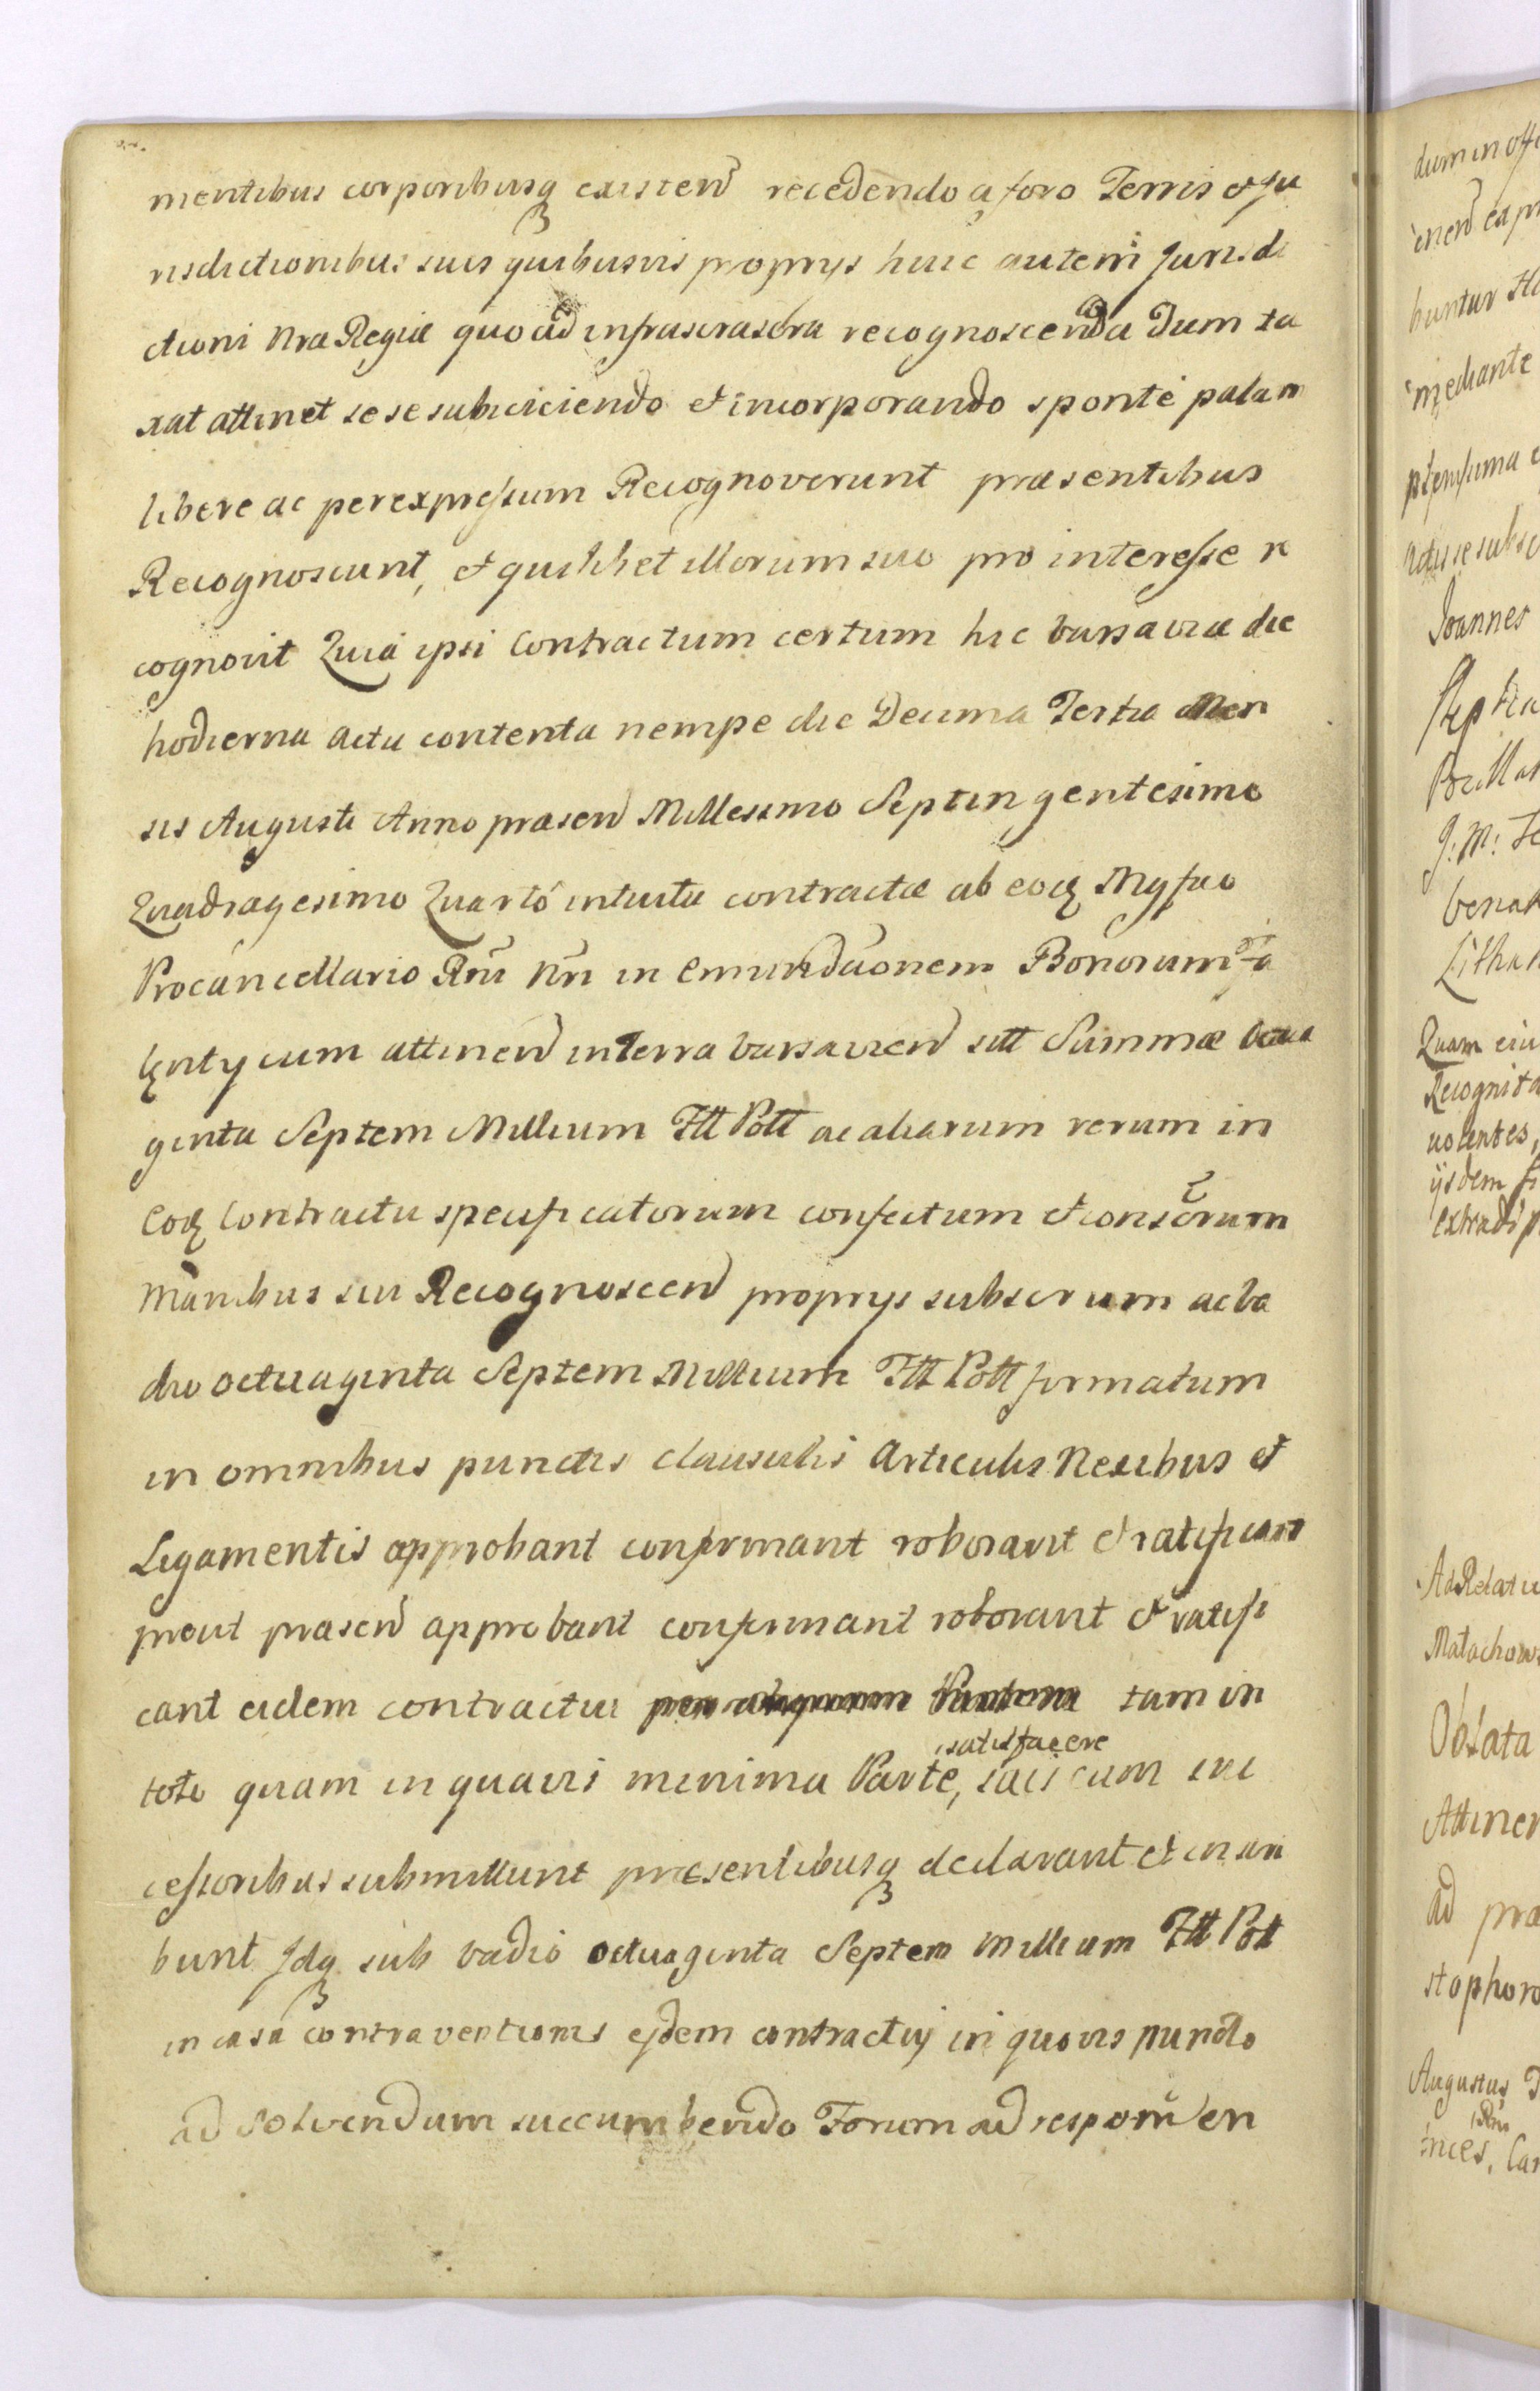 mentibus corporibusq existen recedendo a foro Terris et Ju
risdictionibus suis quibusvis proprijs huic autem Jurisdi
ctioni Nrae Regiae quo ad infrascra recognoscenda Dum ta
xat attinet sese subijciendo et incorporando sponte palam
libere ac per expressum Recognoverunt praesentibus
Recognoscunt, et quilibet illorum suo pro interesse re
cognovit Quia ipsi Contractum certum hic Varsaviae die
hodierna actu contenta nempe die Decima Tertia Men
sis Augusti Anno praesen Millesimo Septingentesimo
Quadragesimo Quarto intuitu contractae ab eodem Mgfco
Procancellario Rni Nri in Emundaonem Bonorum
cum attinen in Terra Varsavien sitt Summae Octua
ginta Septem Millium Fltt Poltt ac aliarum rerum in
Eodem Contractu specificatorum confectum et conscrum
Manibus sui Recognoscen proprijs subscrum ac va
dio octuaginta Septem Millium Fltt Poltt firmatum
in omnibus punctis clausulis Articulis Nexibus et
Ligamentis approbant confirmant roborant et ratificant
prout praesen approbant confirmant roborant et ratifi
cant eidem contractui tam in
toto quam in quavis minima Parte, satisfacere
suis cum suc
cessoribus submittunt praesentibusq declarant et in scri
bunt Jdq sub vadio octuaginta Septem Millium Fltt Poltt
in casu contraventionis ejdem contractuj in quovis puncto
ad solvendum succumbendo Forum ad responden
dum in offi
inen ea pr
buntur
mediante
ptem suma
Actis se subsc
Joannes
J: M:
Lithu
Quam
Recognita
volentes,
ijsdem
extradi p
Ad Relatio
Matachows
Oblata
Attinen
ad prae
stophoro
Augustus